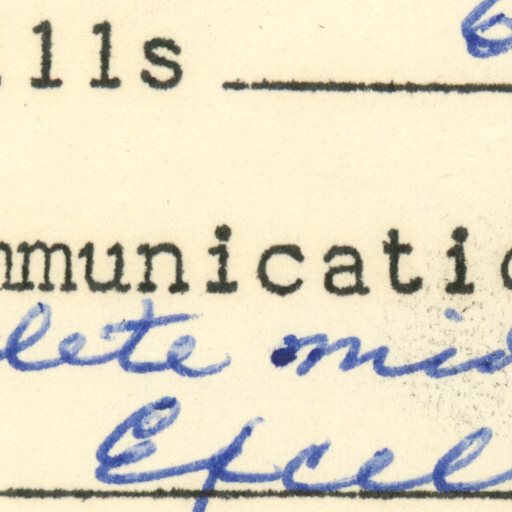 ills
mmunicatio
lete mid
Excel